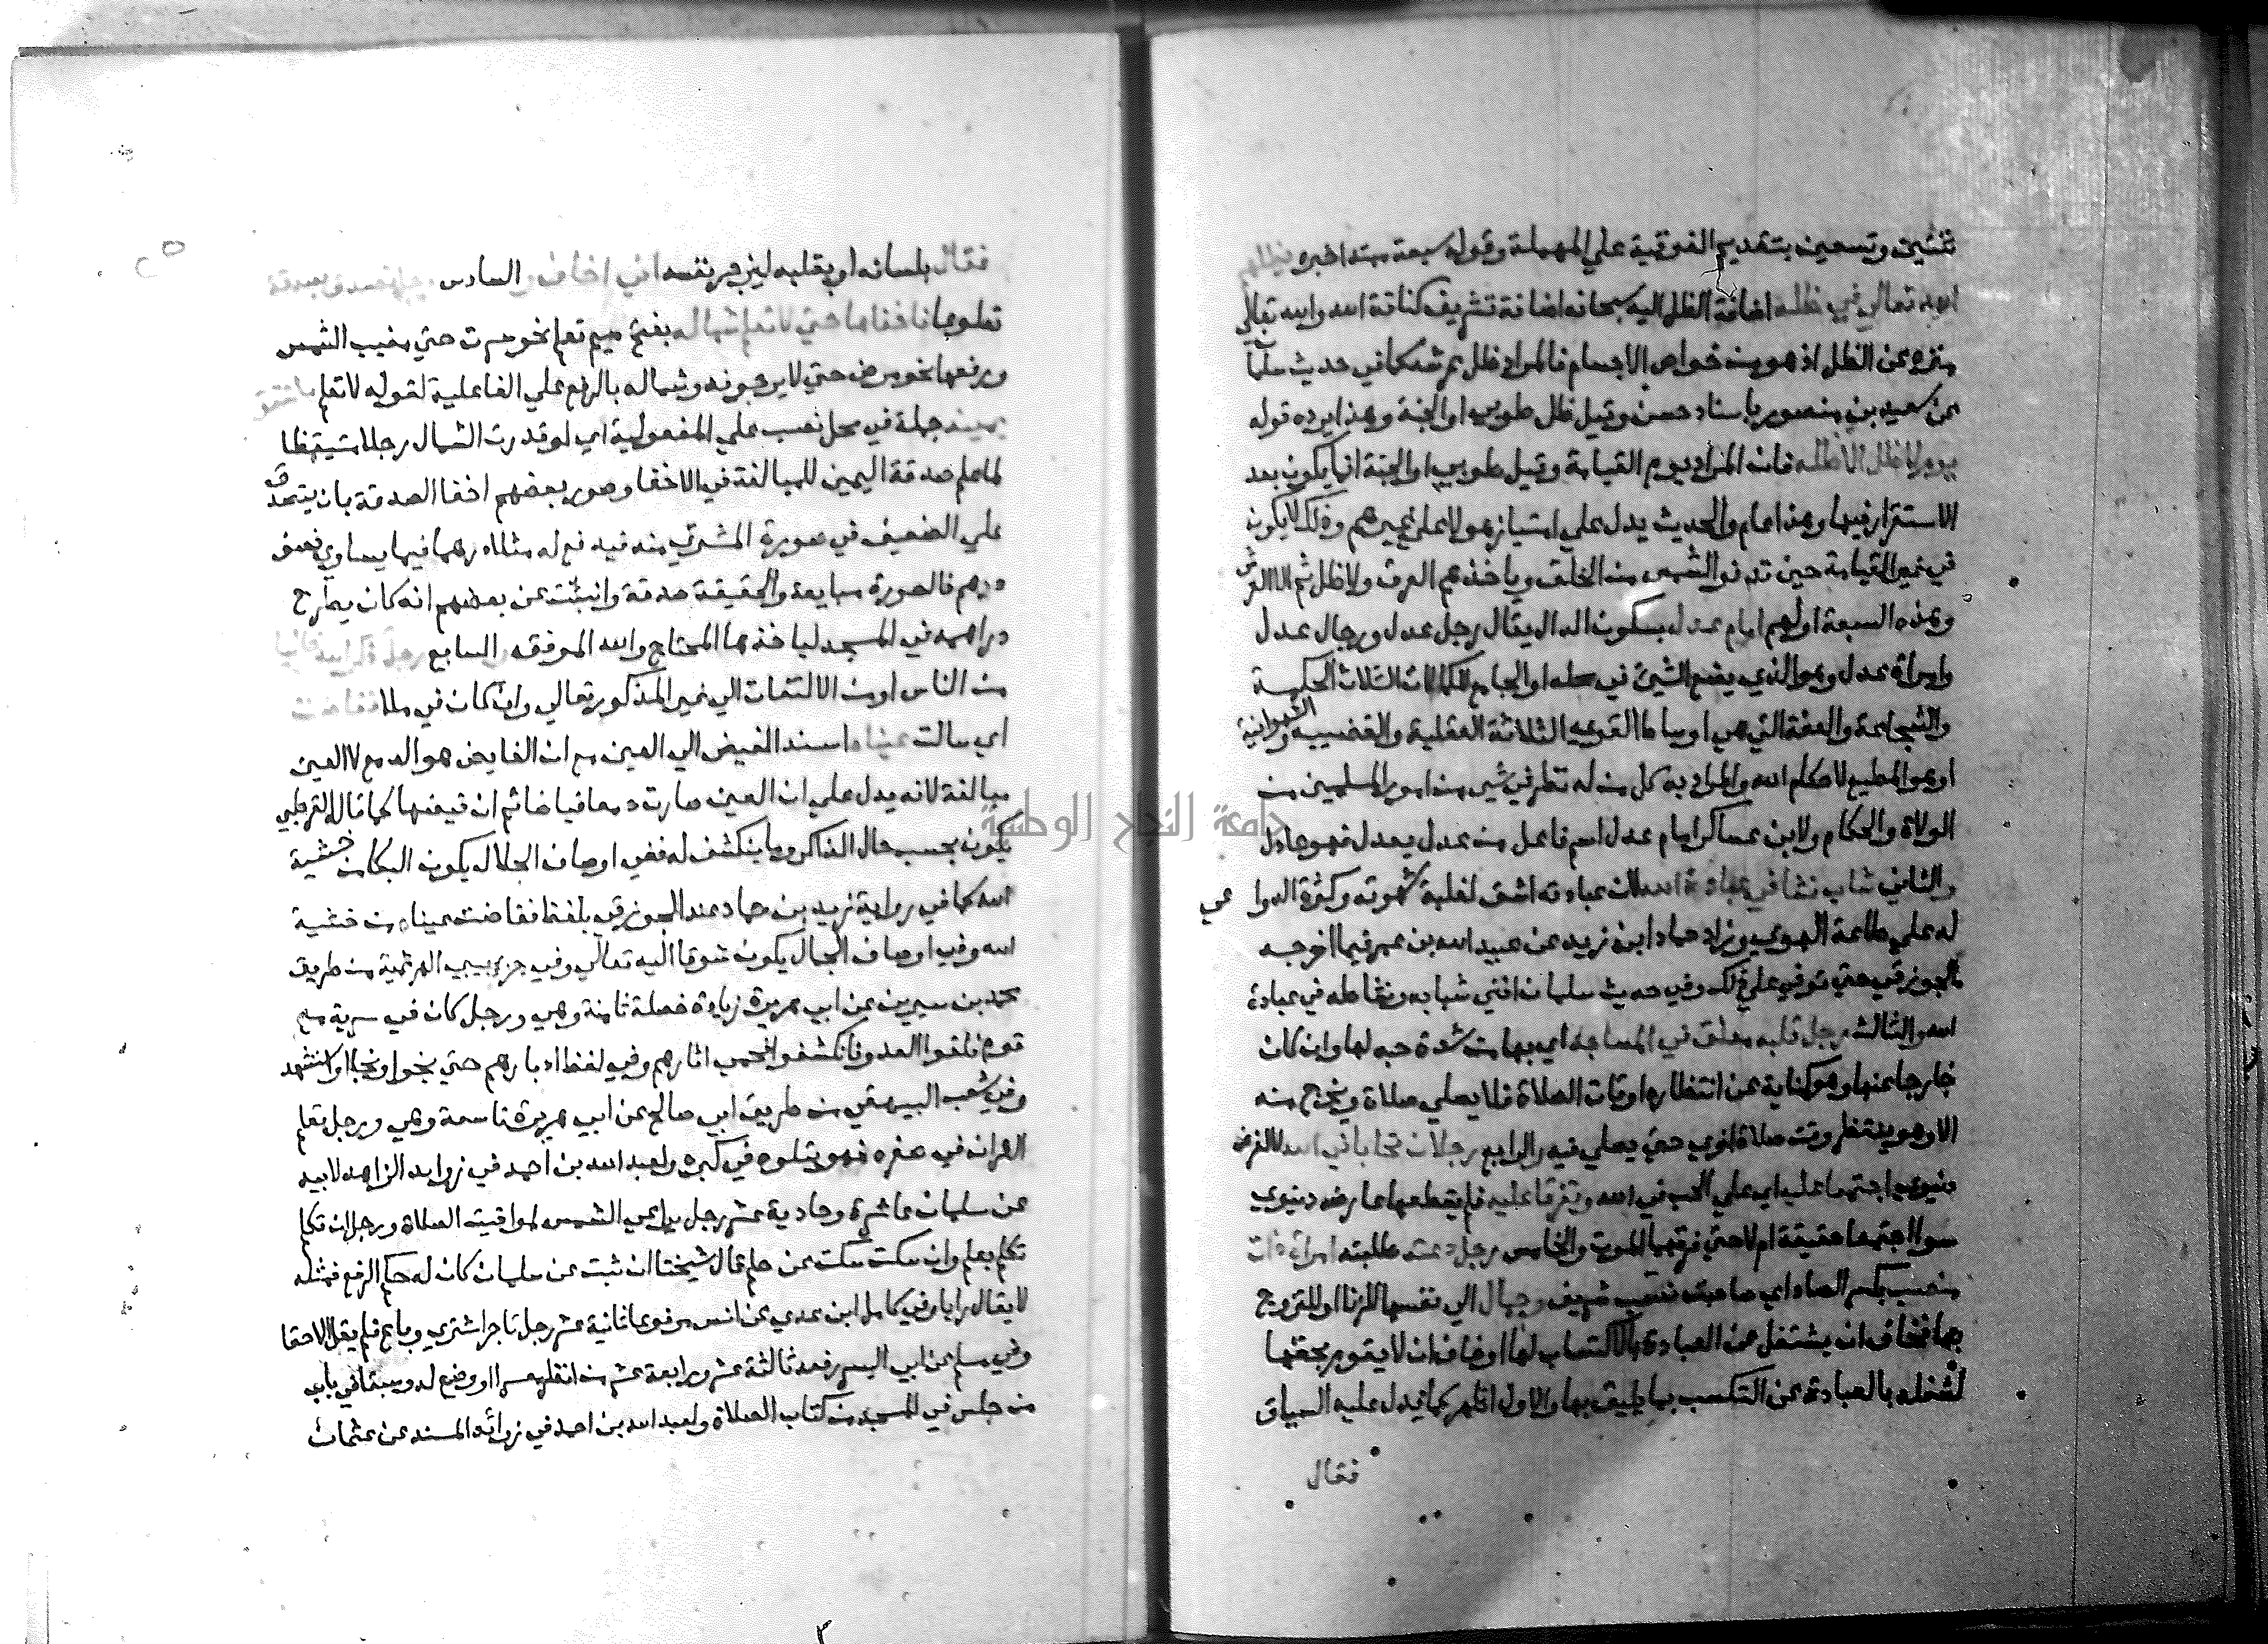 ثنتين وتسعين بتقديم الفوقية علي المهملة وقوله سبعة مبتدا خبره يظلهم
الله تعالي في ظله اضافة الظل اليه سبحانه اضافة تشريف كناقة الله والله تعالي
منزه عن الظل اذ هو من خواص الاجسام فالمراد ظل عرشه كما في حديث سلمان
عن سعيد بن منصور باسناد حسن وقيل ظل طوبي او الجنة وهذا يرده قوله
يوم لا ظل الا ظله فان المراد يوم القيامة وقيل طوبي او الجنة انما يكون بعد
الاستقرار فيها وهذا عام والحديث يدل علي امتياز هولا علي غيرهم وذلك لا يكون
في غير القيامة حين تدنو الشمس من الخلق وياخذهم العرق ولا ظل ثم الا العرش
وهذه السبعة اولهم امام عدل بسكون الدال يقال رجل عدل ورجال عدل
وامراة عدل وهو الذي يضع الشيئ في محله او الجامع للكمالات الثلاث الحكمة
والشجاعة والعفة التي هي اوساط القوي الثلاثة العقلية والغضبيه والشهوانية
او هو المطيع لاحكام الله والمراد به كل من له نظر في شي من امور المسلمين من
الولاة والحكام ولابن عساكر امام عدل اسم فاعل من عدل يعدل فهو عادل
والثاني شاب نشا في عبادة الله لان عبادته اشق لغلبة شهوته وكثرة الدواعي
له علي طاعة الهوي وزاد حماد ابن زيد عن عبيد الله بن عمر فيما اخرجه
الجوزقي حتي توفي علي ذلك وفي حديث سلمان افني شبابه ونشاطه في عبادة
الله والثالث رجل قلبه معلق في المساجد اي بها من شدة حبه لها وان كان
خارجا عنها وهو كناية عن انتظاره اوقات الصلاة فلا يصلي صلاة ويخرج منه
الا وهو ينتظر وقت صلاة اخري حتي يصلي فيه والرابع رجلان تحابا في الله لا لغرض
دنيوي اجتمعا عليه اي علي الحب في الله وتفرقا عليه فلم يقطعهما عارض دينوي
سوا اجتمعا حقيقة ام لا حتي فرقهما الموت والخامس رجل دعته طلبته امراة ذات
منصب بكسر الصاد اي صاحبة نسب شريف وجمال الي نفسها للزنا او للتزوج
بها فخاف ان يشتغل عن العبادة بالاكتساب لها او خاف ان لا يقوم بحقها
لشغله بالعبادة عن التكسب بما يليق بها والاول اظهر كما يدل عليه السياق
فقال
فقال بلسانه او بقلبه ليزجر نفسه اني اخاف السادس رجل تصدق بصدقة
تطوعا فاخفاها حتي لا تعلم شماله بفتح ميم تعلم نحو سرت حتي مغيب الشمس
ورفعها نحو مرض حتي لا يرجونه وشماله بالرفع علي الفاعلية لقوله لا تعلم ما تنفق
يمينه جملة في محل نصب علي المفعولية اي لو قدرت الشمال رجلا متيقظا
لما علم صدقة اليمين للمبالغة في الاخفا وصور بعضهم اخفا الصدقة بان يتصدق
علي الضعيف في صورة المشتري منه فيدفع له مثلا درهما فيما يساوي نصف
درهم فالصورة مبايعة والحقيقة صدقة وانبئت عن بعضهم انه كان يطرح
دراهمه في المسجد لياخذها المحتاج والله الموفقه السابع رجل ذكر الله خاليا
من الناس او من الالتفات الي غير المذكور تعالي وان كان في ملا ففاضت
اي سالت عيناه اسند الفيض الي العين مع ان الفايض هو الدمع لا العين
مبالغة لانه يدل علي ان العين صارت دمعا فياضا ثم ان فيضها كما قال القرطبي
يكون بحسب حال الذاكر وما ينكشف له ففي اوصاف الجلال يكون البكا من خشية
الله كما في رواية زيد بن حماد عند الجوزقي بلفظ ففاضت عيناه من خشية
الله وفي اوصاف الجمال يكون شوقا اليه تعالي وفي جزء بيبي الهرثمية من طريق
محمد بن سيرين عن ابي هريرة زيادة خصلة ثامنة وهي ورجل كان في سرية مع
قوم فلقوا العدو فانكشفوا فحمي اثارهم وفي لفظ ادبارهم حتي نجوا ونجا او استشهد
وفي شعب البيهقي من طريق ابي صالح عن ابي هريرة تاسعة وهي ورجل تعلم
القران في صغره فهو يتلوه في كبره ولعبد الله بن احمد في زوايد الزاهد لابيه
عن سلمان عاشرة وحادية عشر رجل يراعي الشمس لمواقيت الصلاة ورجل ان تكلم
تكلم بعلم وان سكت سكت عن حلم قال شيخنا ان ثبت عن سلمان كان له حكم الرفع فمثله
لا يقال رايا وفي كامل ابن عدي عن انس مرفوعا ثانية عشر رجل تاجر اشتري وباع فلم يقل الا حقا
وفي مسلم عن ابي اليسر رفعه ثالثة عشر ورابعة عشر من انظر معسرا او وضع له وسبقا في باب
من جلس في المسجد من كتاب الصلاة ولعبد الله بن احمد في زوائد المسند عن عثمان
جامعة النجاح الوطنية